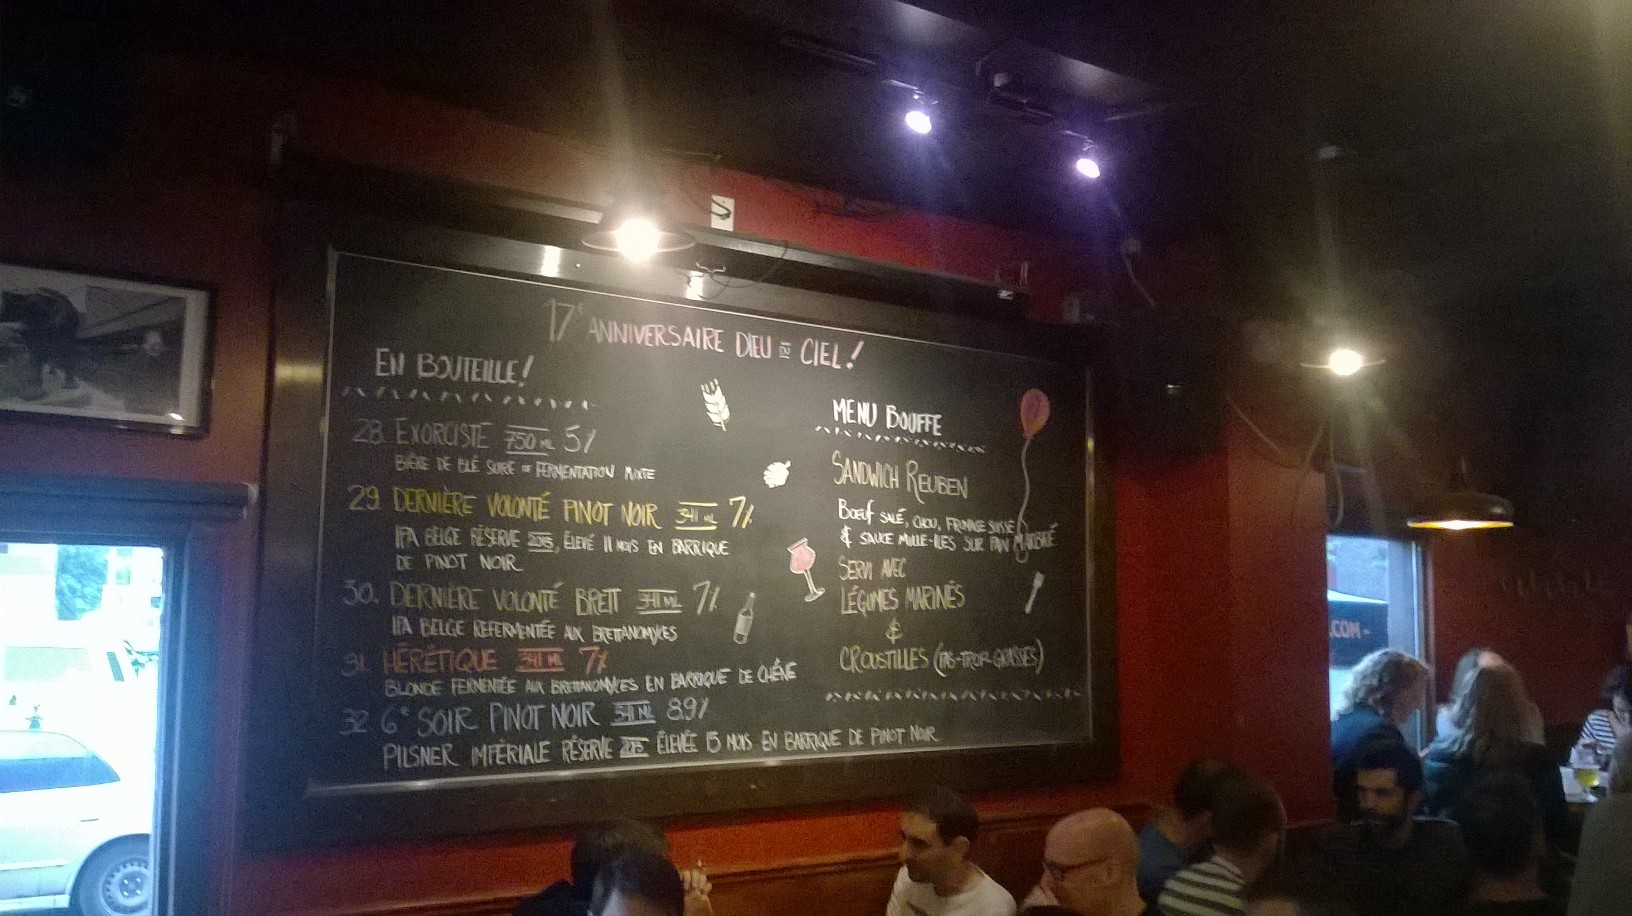 17e ANNIVERSAIRE DIEU DU CIEL!
EN BOUTEILLE!
28. EXORCISTE 750 ML 5%
BIÈRE DE BLÉ SURE - FERMENTATION MIXTE
29. DERNIÈRE VOLONTÉ PINOT NOIR 341 ML 7%
IPA BELGE RÉSERVE 2015, ÉLEVÉ 11 MOIS EN BARRIQUE
DE PINOT NOIR
30. DERNIÈRE VOLONTÉ BRETT 341 ML 7%
IPA BELGE REFERMENTÉE AUX BRETTANOMYCES
31. HÉRÉTIQUE 341 ML 7%
BLONDE FERMENTÉE AUX BRETTANOMYCES EN BARRIQUE DE CHÊNE
32. 6e SOIR PINOT NOIR 341 ML 8.9%
PILSNER IMPÉRIALE RÉSERVE 2015 ÉLEVÉE 15 MOIS EN BARRIQUE DE PINOT NOIR
MENU BOUFFE
SANDWICH REUBEN
BOEUF SALÉ, CHOU, FROMAGE SUISSE
& SAUCE MILLE-ILES SUR PAIN MARBRÉ
SERVI AVEC
LÉGUMES MARINÉS
&
CROUSTILLES (PAS-TROP-GRASSES)
.COM -